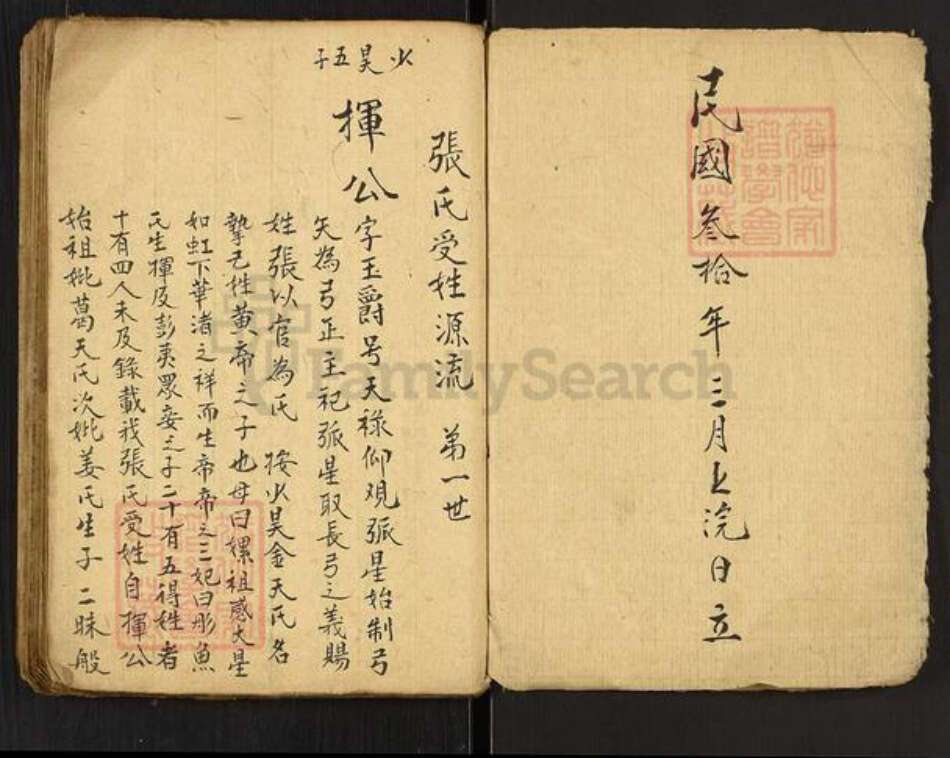 民國叁拾年三月上浣日立
張氏受姓源流 第一世
少昊五子
揮公
字玉爵号天禄仰观弧星始制弓
矢為弓正主祀弧星取長弓之義賜
姓張以官為氏 按少昊金天氏名
摯己姓黄帝之子也母曰嫘祖感大星
如虹下華渚之祥而生帝帝之三妃曰彤魚
氏生揮及彭夷眾妾之子二十有五得姓者
十有四人未及錄載我張氏受姓自揮公
始祖妣葛天氏次妣姜氏生子 二昧般
FamilySearch